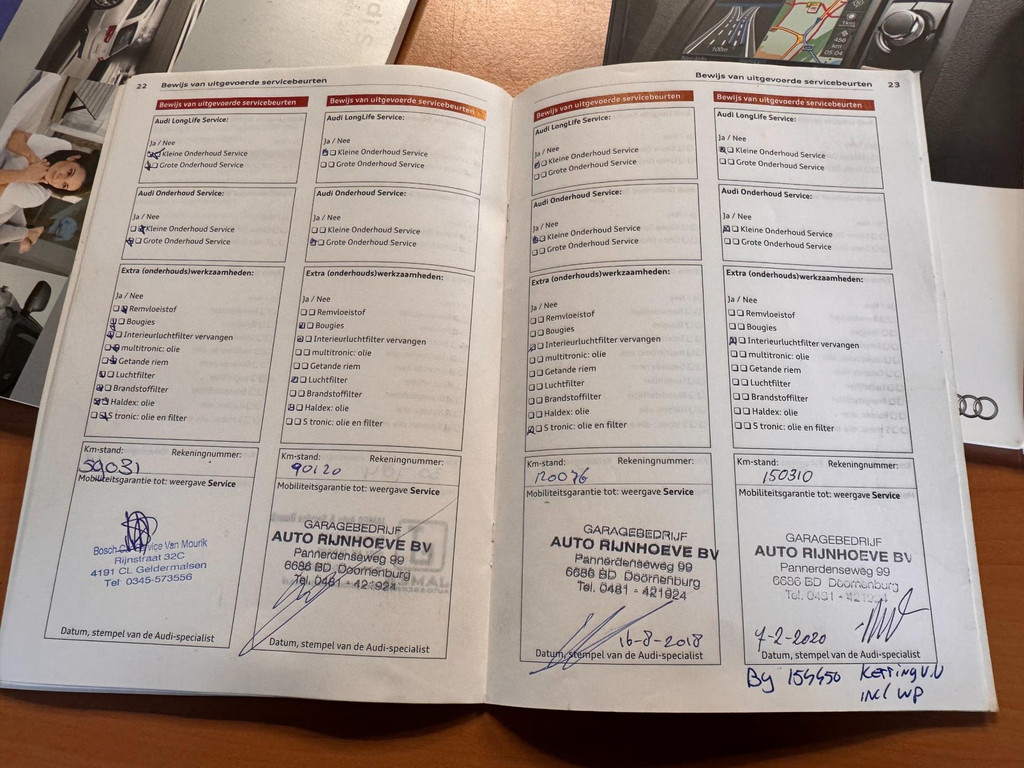 22 Bewijs van uitgevoerde servicebeurten
Bewijs van uitgevoerde servicebeurten
Audi LongLife Service:
Ja / Nee
Kleine Onderhoud Service
Grote Onderhoud Service
Audi Onderhoud Service:
Ja / Nee
Kleine Onderhoud Service
Grote Onderhoud Service
Extra (onderhouds)werkzaamheden:
Ja / Nee
Remvloeistof
Bougies
Interieurluchtfilter vervangen
multitronic: olie
Getande riem
Luchtfilter
Brandstoffilter
Haldex: olie
S tronic: olie en filter
Km-stand: Rekeningnummer:
59031
Mobiliteitsgarantie tot: weergave Service
Bosch Car Service Van Mourik
Rijnstraat 32C
4191 CL Geldermalsen
Tel: 0345-573556
Datum, stempel van de Audi-specialist
Bewijs van uitgevoerde servicebeurten
Audi LongLife Service:
Ja / Nee
Kleine Onderhoud Service
Grote Onderhoud Service
Audi Onderhoud Service:
Ja / Nee
Kleine Onderhoud Service
Grote Onderhoud Service
Extra (onderhouds)werkzaamheden:
Ja / Nee
Remvloeistof
Bougies
Interieurluchtfilter vervangen
multitronic: olie
Getande riem
Luchtfilter
Brandstoffilter
Haldex: olie
S tronic: olie en filter
Km-stand: Rekeningnummer:
90120
Mobiliteitsgarantie tot: weergave Service
GARAGEBEDRIJF
AUTO RIJNHOEVE BV
Pannerdenseweg 99
6686 BD Doornenburg
Tel. 0481 - 421924
Datum, stempel van de Audi-specialist
Bewijs van uitgevoerde servicebeurten 23
Bewijs van uitgevoerde servicebeurten
Audi LongLife Service:
Ja / Nee
Kleine Onderhoud Service
Grote Onderhoud Service
Audi Onderhoud Service:
Ja / Nee
Kleine Onderhoud Service
Grote Onderhoud Service
Extra (onderhouds)werkzaamheden:
Ja / Nee
Remvloeistof
Bougies
Interieurluchtfilter vervangen
multitronic: olie
Getande riem
Luchtfilter
Brandstoffilter
Haldex: olie
S tronic: olie en filter
Km-stand: Rekeningnummer:
120076
Mobiliteitsgarantie tot: weergave Service
GARAGEBEDRIJF
AUTO RIJNHOEVE BV
Pannerdenseweg 99
6686 BD Doornenburg
Tel. 0481 - 421924
16-8-2018
Datum, stempel van de Audi-specialist
Bewijs van uitgevoerde servicebeurten
Audi LongLife Service:
Ja / Nee
Kleine Onderhoud Service
Grote Onderhoud Service
Audi Onderhoud Service:
Ja / Nee
Kleine Onderhoud Service
Grote Onderhoud Service
Extra (onderhouds)werkzaamheden:
Ja / Nee
Remvloeistof
Bougies
Interieurluchtfilter vervangen
multitronic: olie
Getande riem
Luchtfilter
Brandstoffilter
Haldex: olie
S tronic: olie en filter
Km-stand: Rekeningnummer:
150310
Mobiliteitsgarantie tot: weergave Service
GARAGEBEDRIJF
AUTO RIJNHOEVE BV
Pannerdenseweg 99
6686 BD Doornenburg
Tel. 0481 - 421924
7-2-2020
Datum, stempel van de Audi-specialist
By 154450 Ketting v.v
incl WP
100m